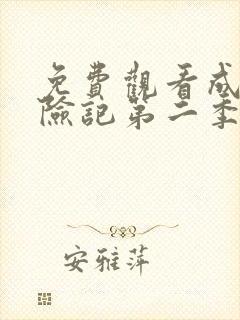 免費觀看成
險記第二季
安雅萍